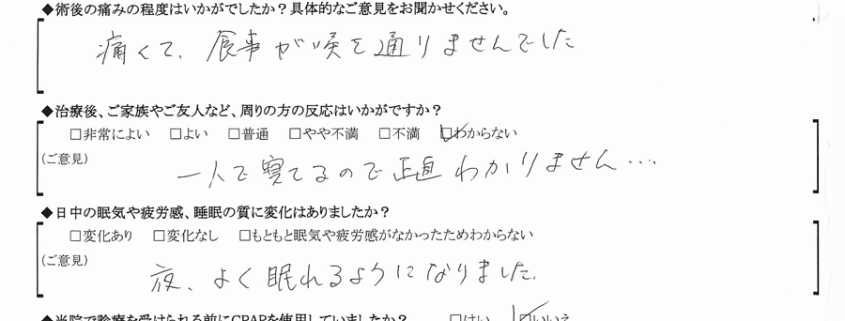 ◆術後の痛みの程度はいかがでしたか？具体的なご意見をお聞かせください。
痛くて、食事が喉を通りませんでした
◆治療後、ご家族やご友人など、周りの方の反応はいかがですか？
□非常によい □よい □普通 □やや不満 □不満 ☑わからない
(ご意見)
一人で寝てるので正直わかりません…
◆日中の眠気や疲労感、睡眠の質に変化はありましたか？
□変化あり □変化なし □もともと眠気や疲労感がなかったためわからない
(ご意見)
夜、よく眠れるようになりました。
◆当院で診療を受けられる前にCPAPを使用していましたか？ □はい ☑いいえ